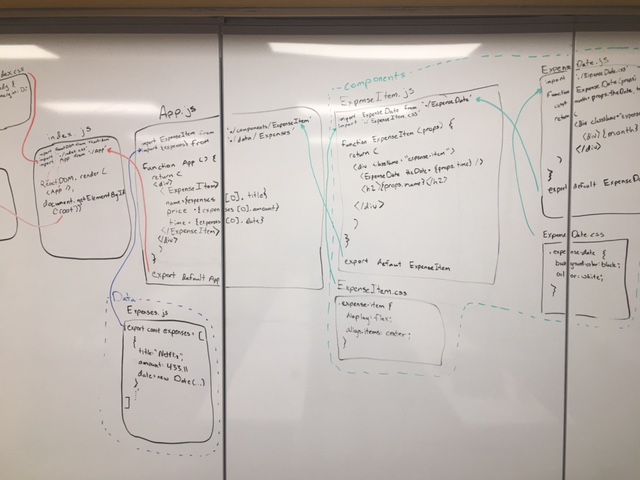 index.css
index.js
import './index.css'
import App from './App'
ReactDOM.render (
<App />,
document.getElementById
('root'))
App.js
import ExpenseItem from './components/ExpenseItem'
import {expenses} from './data/Expenses'
Function App () {
return (
<div>
<ExpenseItem
name={expenses[0].title}
price={expenses[0].amount}
time={expenses[0].date}
</ExpenseItem>
</div>
)
}
export default App
Data
Expenses.js
export const expenses = [
{
title: "Netflix"
amount: 433.11
date=new Date(...)
}
]
components
ExpenseItem.js
import ExpenseDate from './ExpenseDate'
import './ExpenseItem.css'
Function ExpenseItem (props) {
return (
<div className="expense-item">
<ExpenseDate theDate={props.time} />
<h2>{props.name}</h2>
</div>
)
}
export default ExpenseItem
ExpenseItem.css
.expense-item {
display: flex;
align-items: center;
}
ExpenseDate.js
import './ExpenseDate.css'
Function ExpenseDate(props)
const
return
<div className=
<div>{month}
</div>
)
}
export default ExpenseDa
ExpenseDate.css
.expense-date {
background-color: black;
color: white;
}